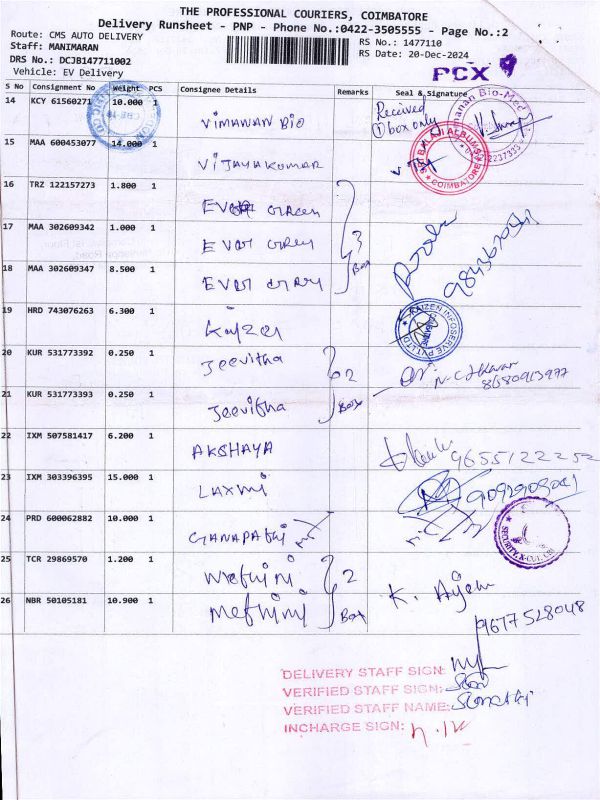 THE PROFESSIONAL COURIERS, COIMBATORE
Delivery Runsheet - PNP - Phone No.:0422-3505555 - Page No.:2
Route: CMS AUTO DELIVERY
RS No.: 1477110
Staff: MANIMARAN
RS Date: 20-Dec-2024
DRS No.: DCJB147711002
Vehicle: EV Delivery
PCX
S No Consignment No Weight PCS Consignee Details Remarks Seal & Signature
14 KCY 61560271 10.000 1 VIMANAN BIO Received
① box only
15 MAA 600453077 14.000 1 VIJAYAKUMAR
COIMBATORE
16 TRZ 122157273 1.800 1
17 MAA 302609342 1.000 1 3
Box
18 MAA 302609347 8.500 1
19 HRD 743076263 6.300 1 Kaizen KAIZEN INFOSERVE PVT LTD
20 KUR 531773392 0.250 1 Jeevitha 2
21 KUR 531773393 0.250 1 Jeevitha Box
22 IXM 507581417 6.200 1 AKSHAYA 9655122252
23 IXM 303396395 15.000 1 LAXMI
24 PRD 600062882 10.000 1 GANAPAthi
SECURITY
25 TCR 29869570 1.200 1 2
26 NBR 50105181 10.900 1 Box K.
9617528048
DELIVERY STAFF SIGN:
VERIFIED STAFF SIGN:
VERIFIED STAFF NAME:
INCHARGE SIGN: